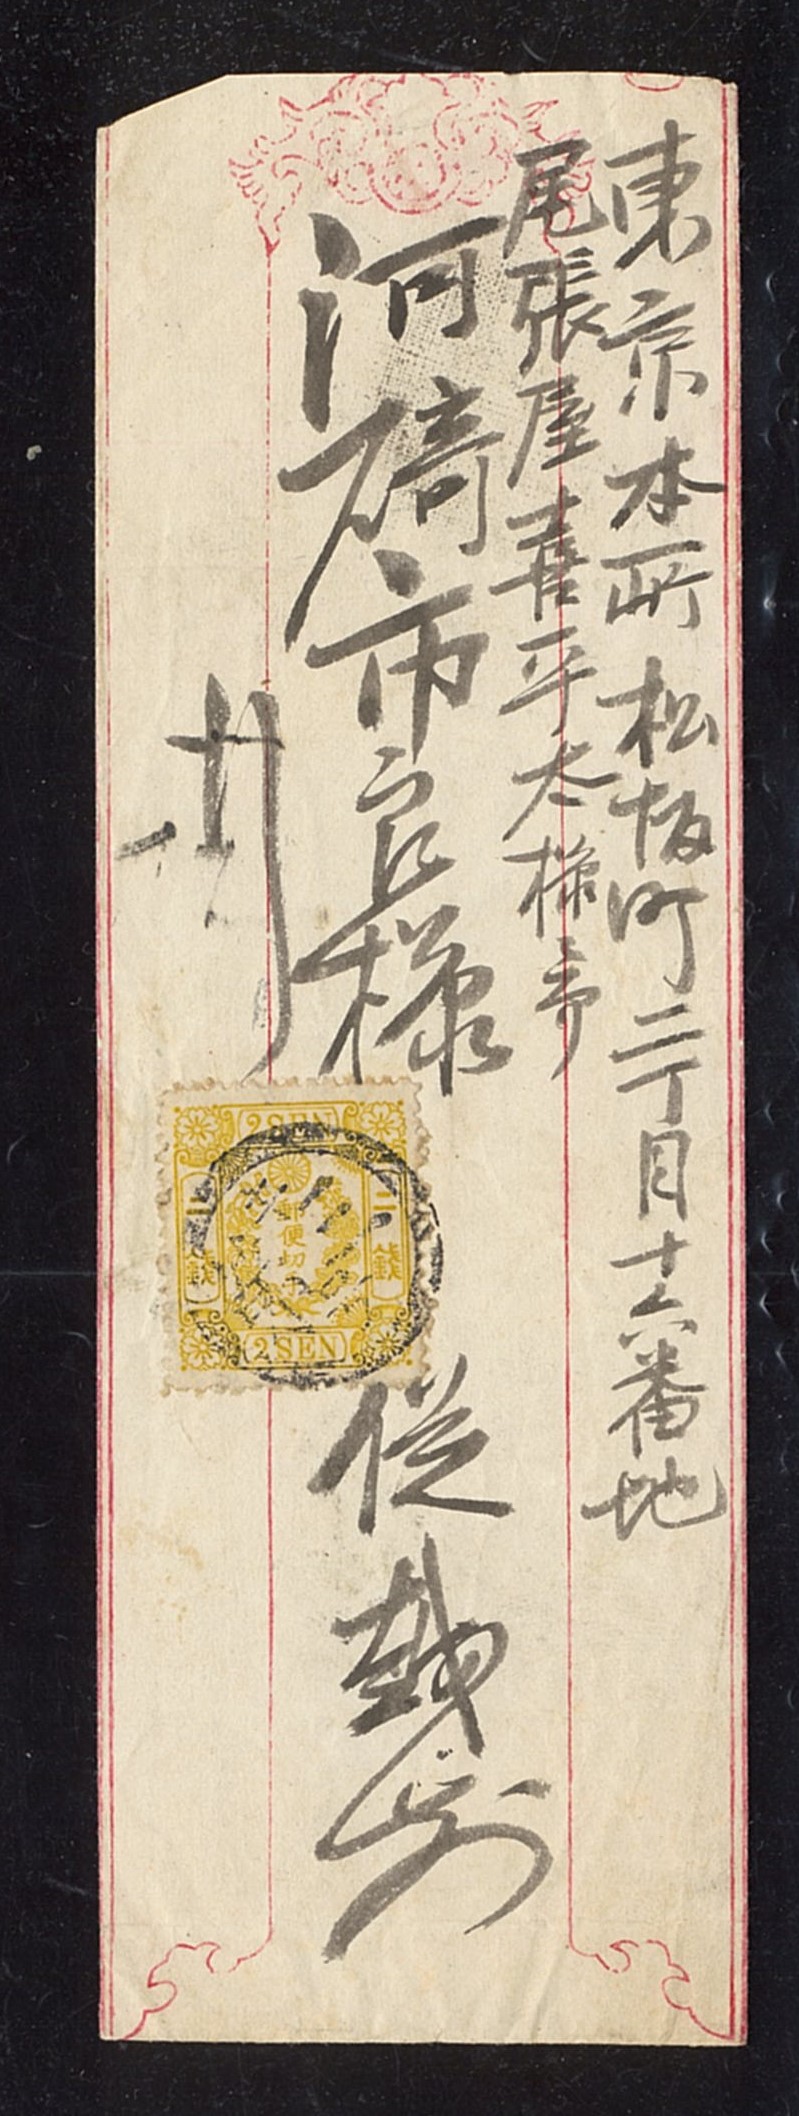 東京本所松坂町二丁目十六番地
尾張屋喜平太様
河碕市良様
従越前
2 SEN
二銭
二銭
郵便切手
2 SEN